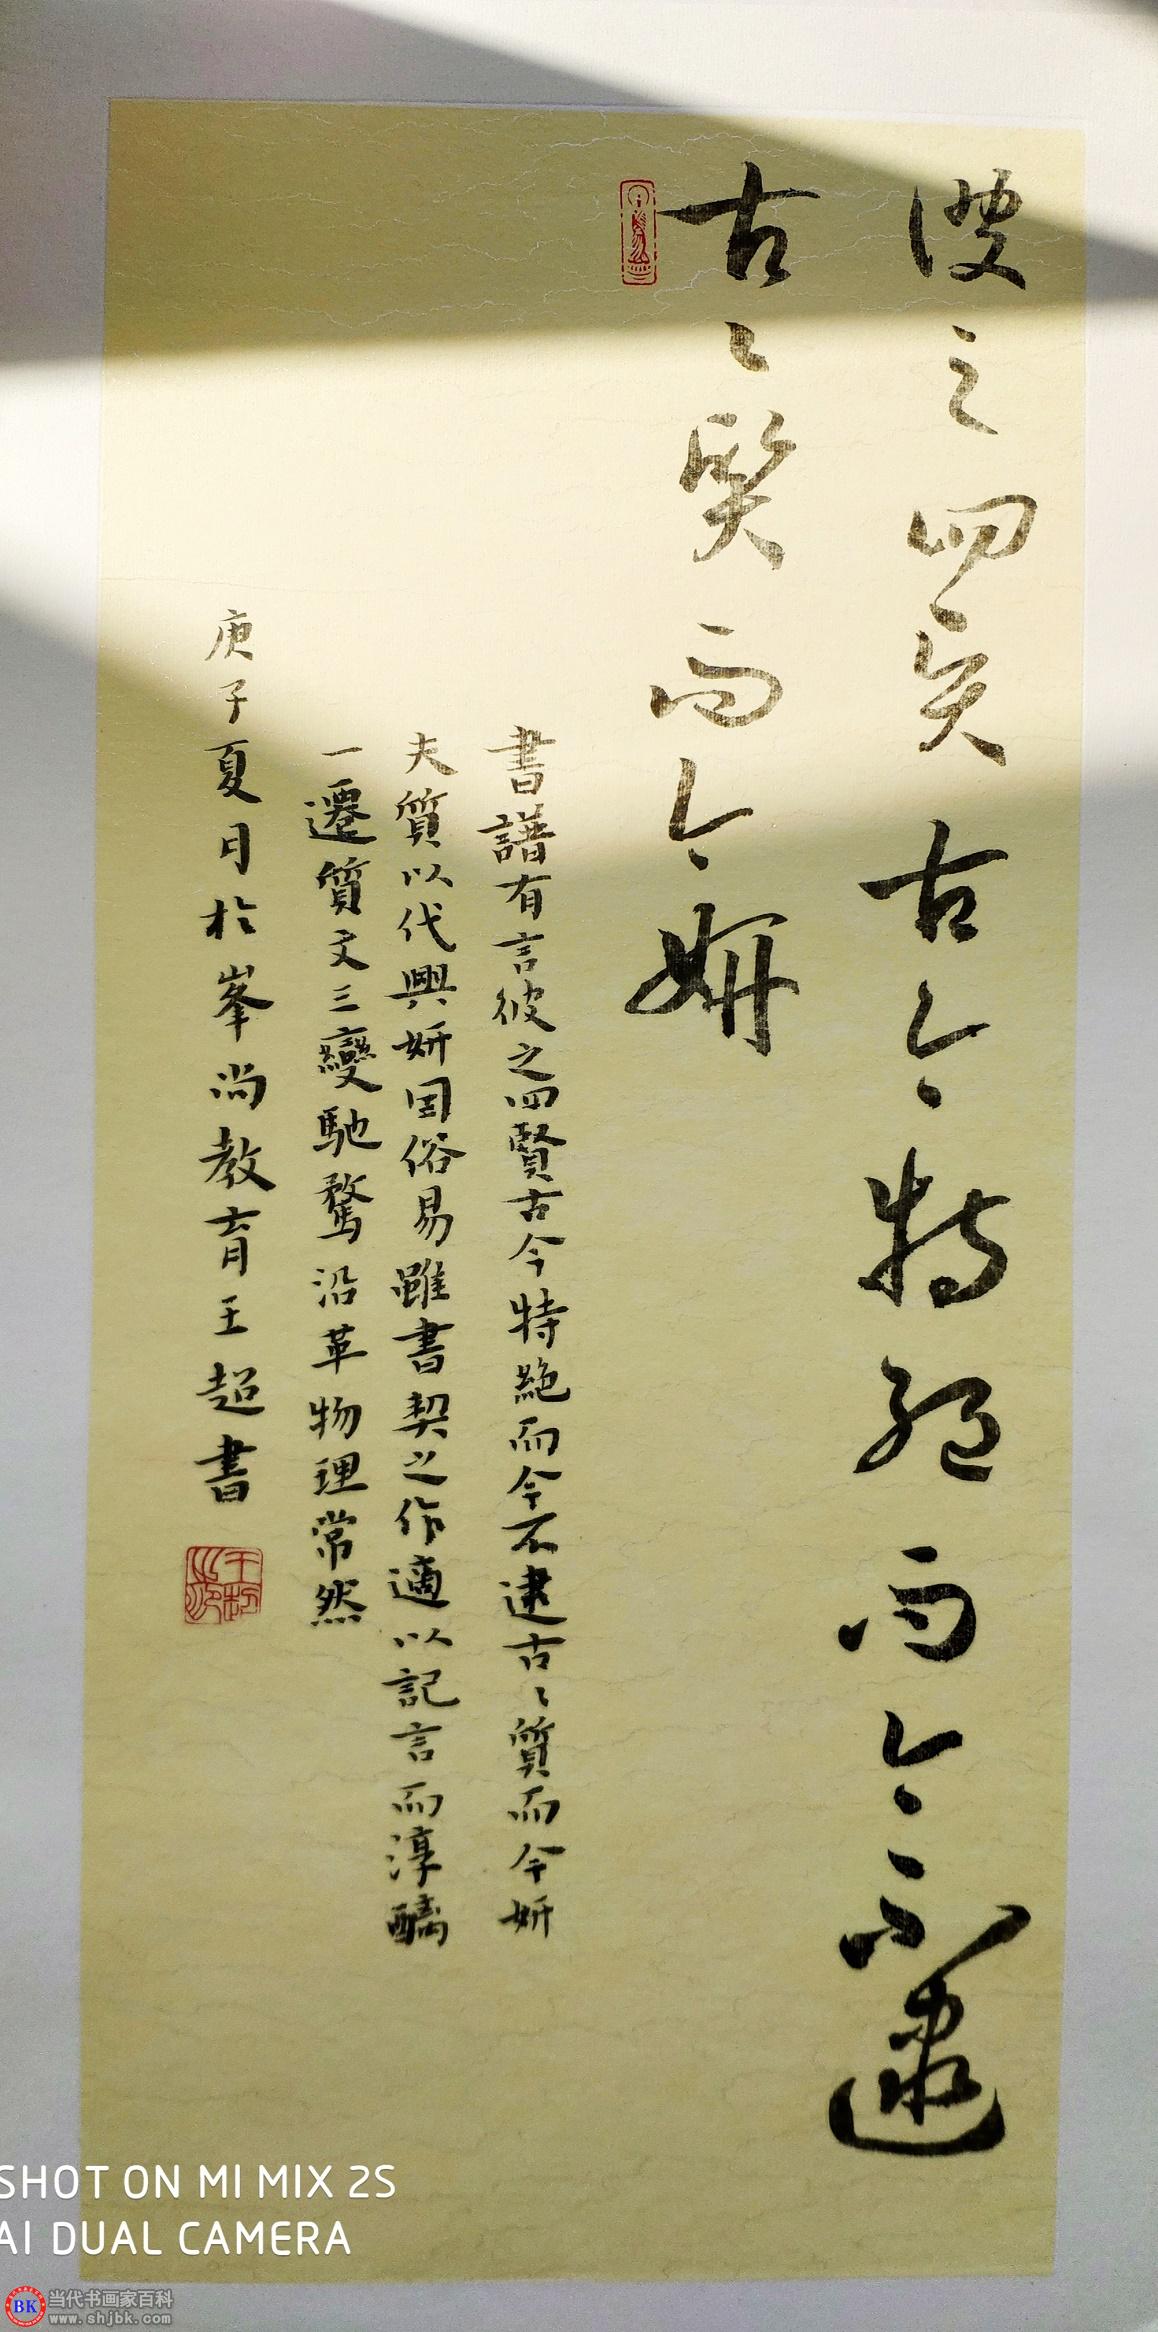 彼之四賢古今特絕而今不逮
古〻質而今妍
書譜有言彼之四賢古今特絕而今不逮古〻質而今妍
夫質以代興妍因俗易雖書契之作適以記言而淳醨
一遷質文三變馳騖沿革物理常然
庚子夏月於峯尚教育王超書
SHOT ON MI MIX 2S
AI DUAL CAMERA
BK
当代书画家百科
www.shjbk.com